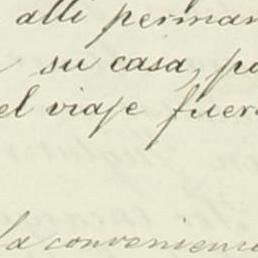 alli perman
su casa, pa
el viaje fuer
la convenien